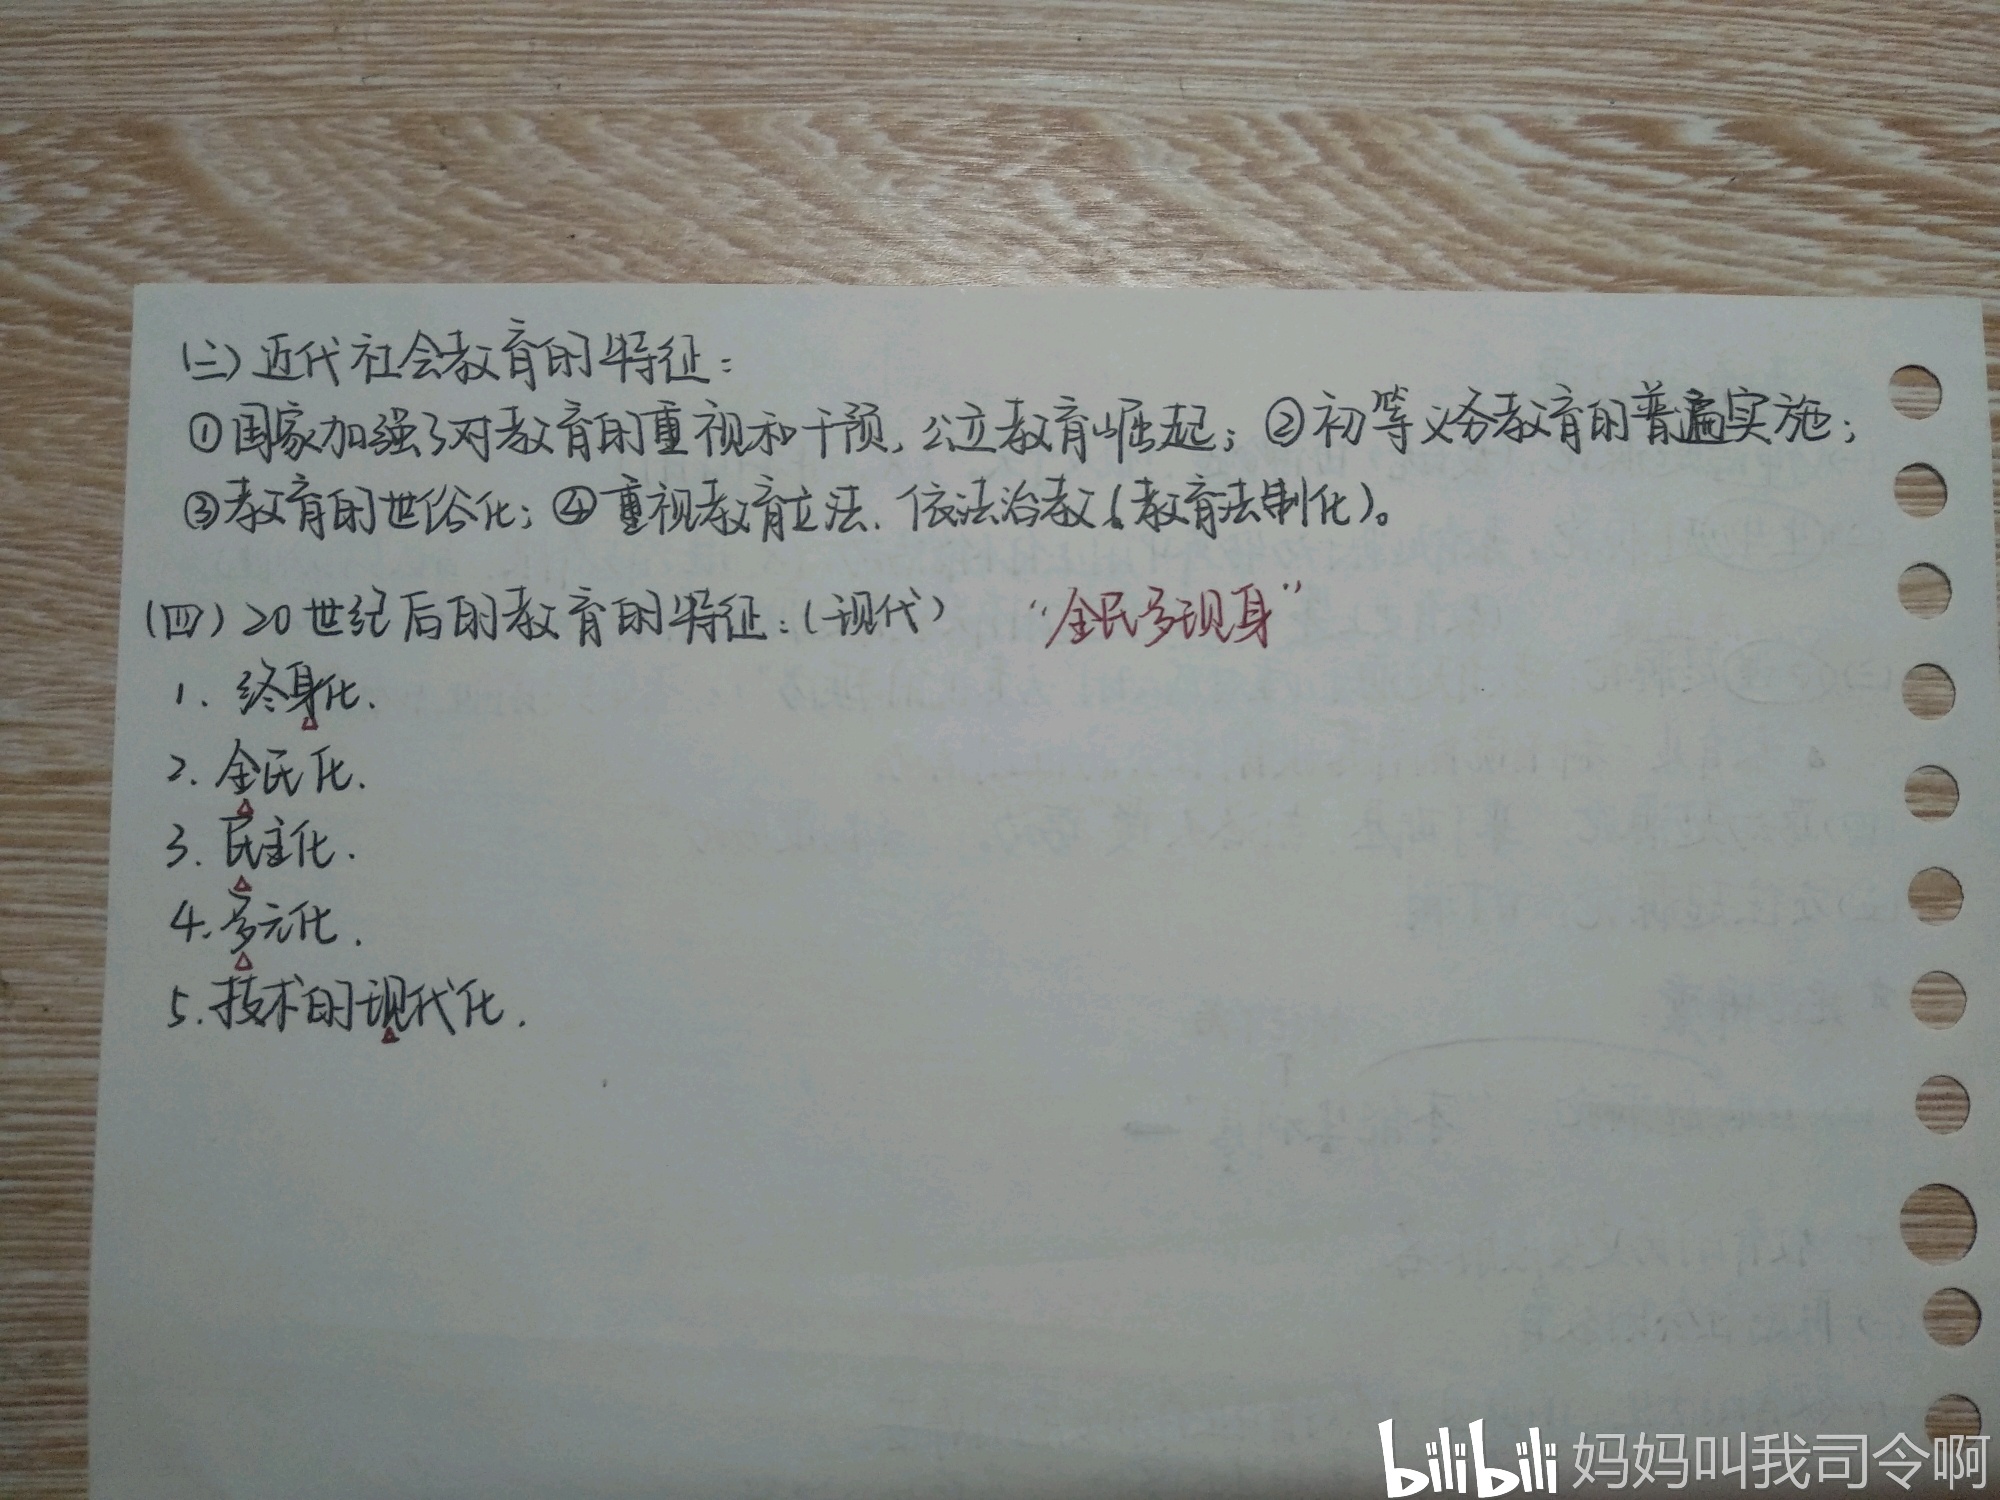 (三)近代社会教育的特征:
①国家加强了对教育的重视和干预,公立教育崛起;②初等义务教育的普遍实施;
③教育的世俗化;④重视教育立法、依法治教(教育法制化)。
(四)20世纪后的教育的特征:(现代) “全民多现身”
1.终身化.
2.全民化.
3.民主化.
4.多元化.
5.技术的现代化.
bilibili 妈妈叫我司令啊